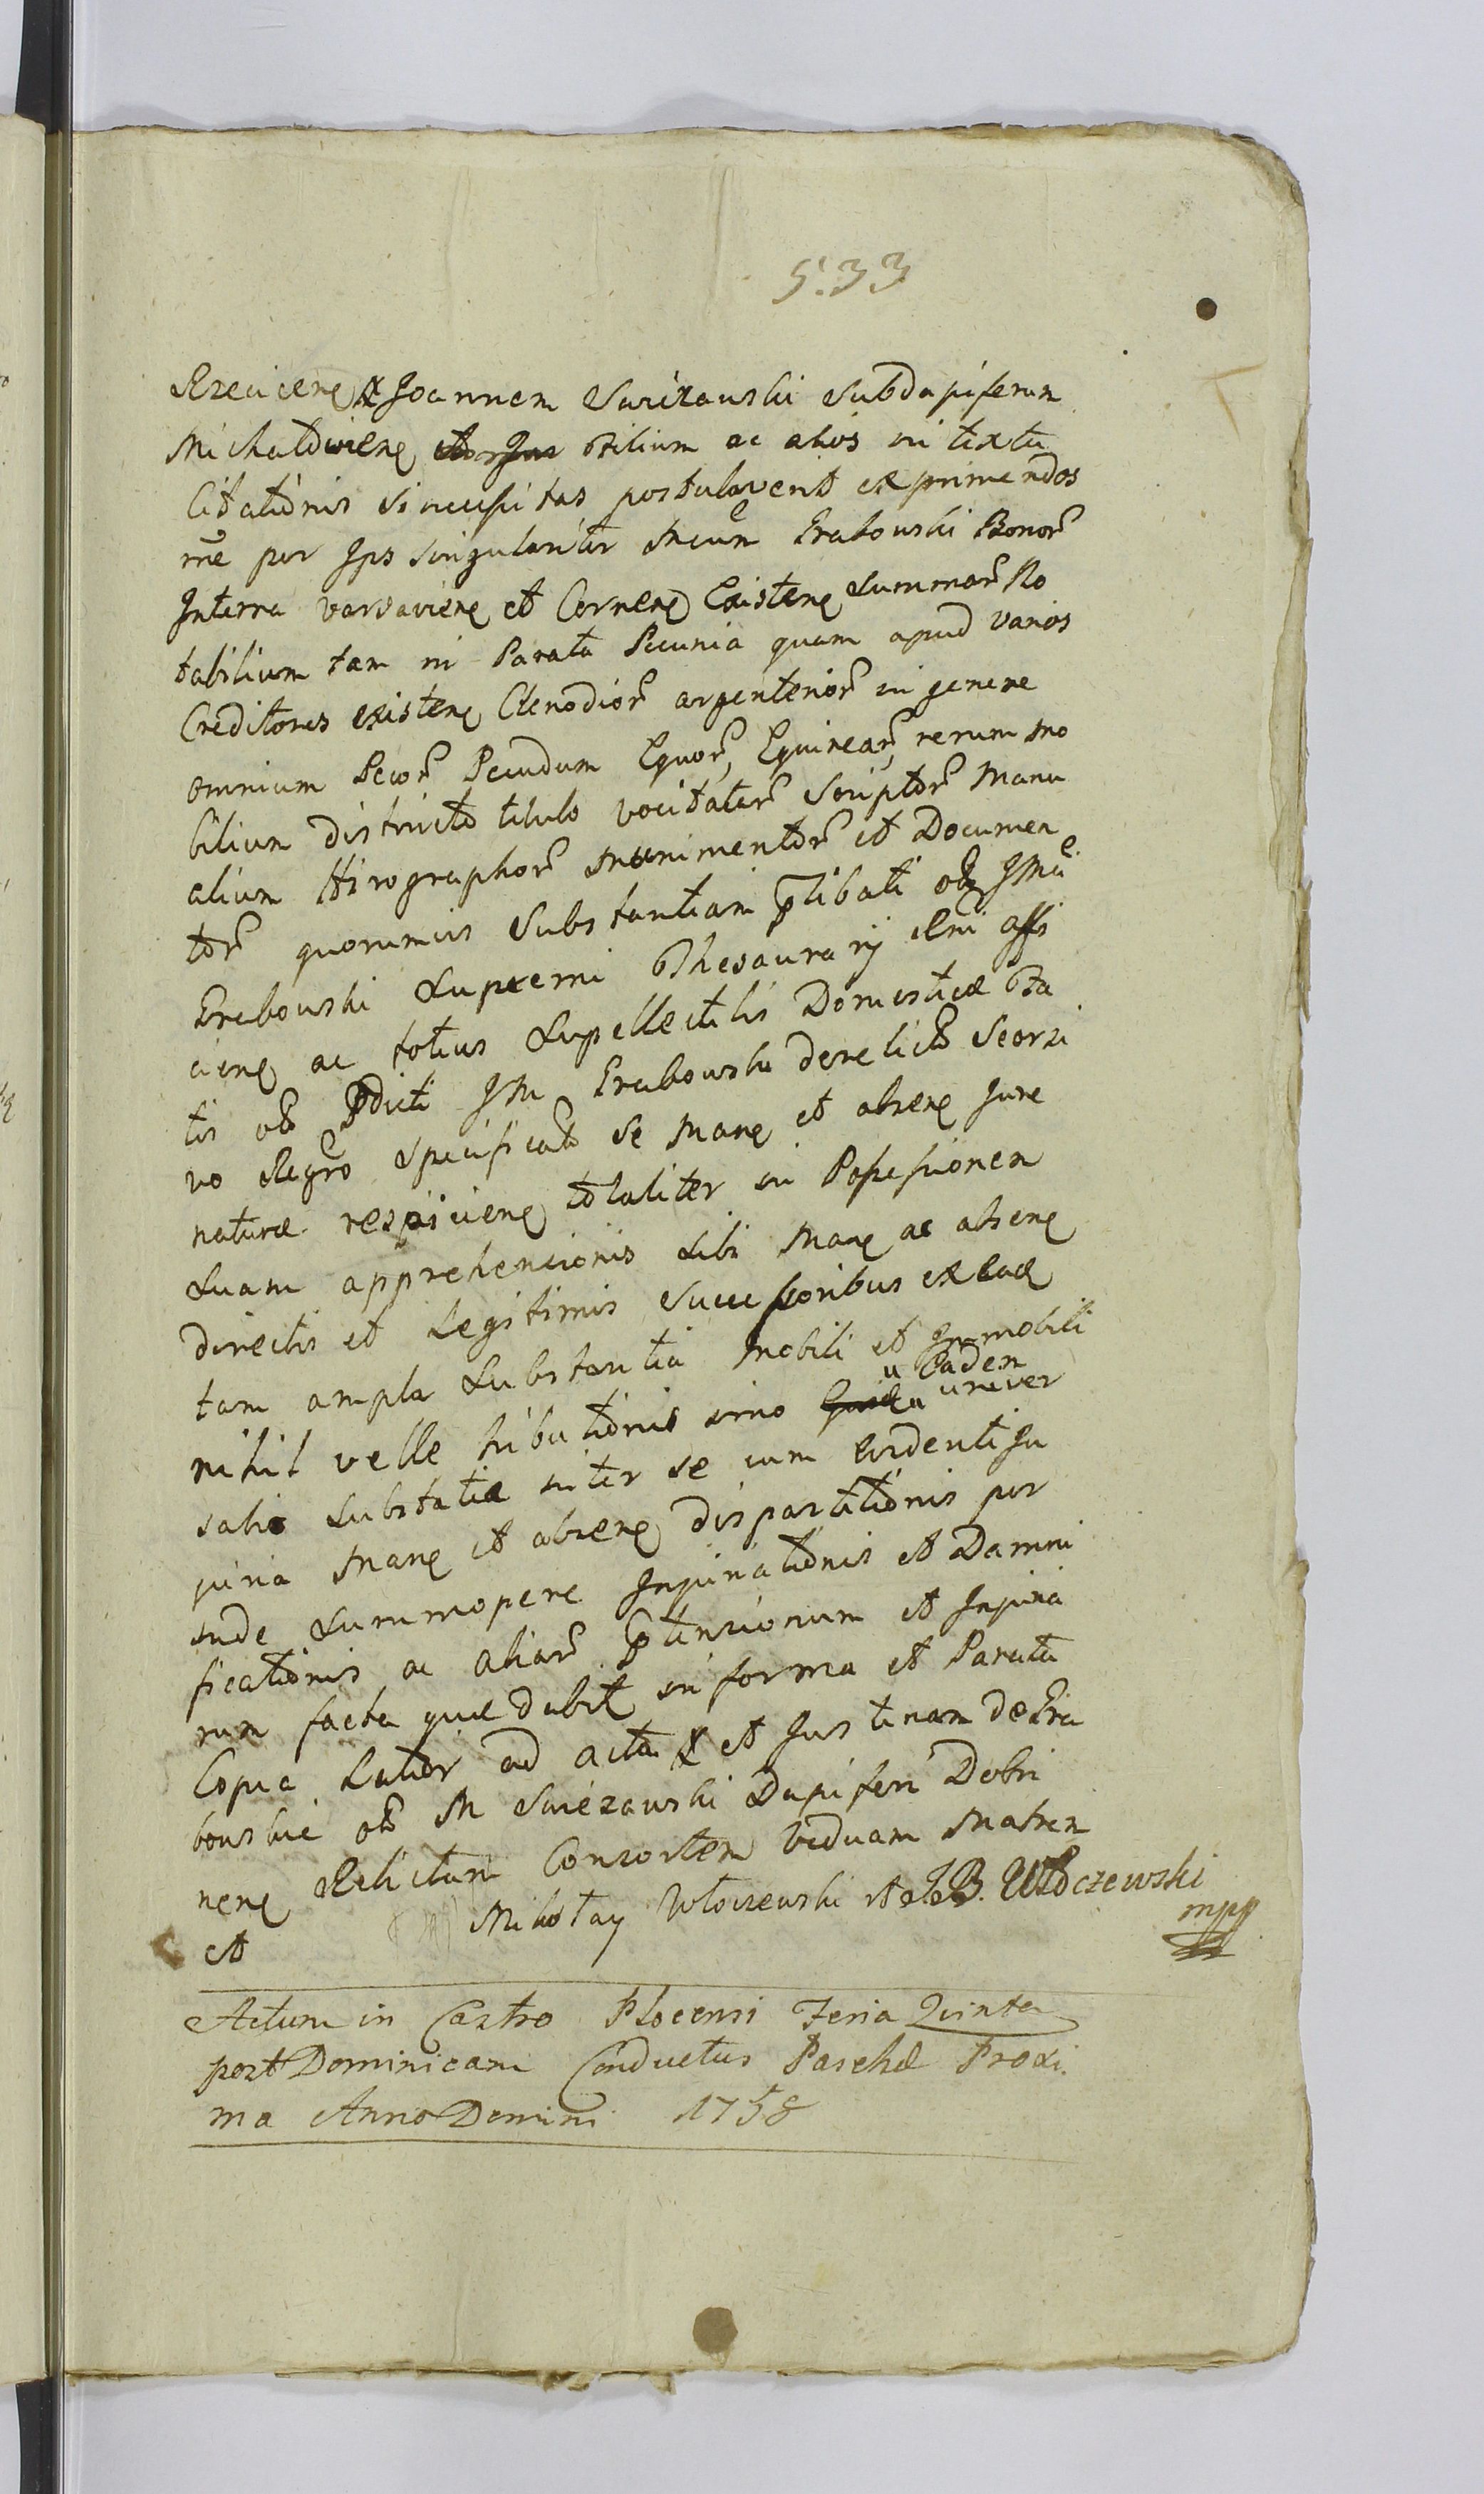 533
et Joannem Swiezawski Subdapiferum
Michałoviens filium ac alios in textu
Citationis si necessitas postulaverit exprimendos
per Ips singulariter Grabowski Bonor
In terra varsaviens et Cernens Existens Summar No
tabilium tam in Parata Pecunia quam apud varios
Creditores existens Clenodior argenterior in genere
omnium Pecor Pecudum Equor, Equirear, rerum mo
bilium districto titulo vocitatar Scriptor Manu
alium Hirographor munimentor et Documen
tor quorumvis Substantiam plibati olim
Grabowski Supremi Thesaurarij
ac totius Supellectilis Domesticæ
tis olim pdicti Grabowski derelict Seorsi
vo Regro Specificat se Mane et absens Jure
naturæ respiciens totaliter in Possessionem
Suam apprehensionis sibi Mane ac absens
directis et Legitimis Successoribus ex ead
tam ampla Substantia mobili et Immobili
nihil velle tributionis imo Eadem univer
salis Substatia inter se cum evidenti Inju
juria Mane et absens dispartitionis per
inde Summopere Injuriationis et Damni
ficationis ac aliar ptensionum et Injuria
rum facta quæ dabit in forma et Paruta
Copia Latior ad acta et Justinam de Gra
bowskie olim M Swiezawski Dapiferi Dobri
nens Relictam Consortem viduam Matrem
et Mikołay Włoczewski J B. Włoczewski
mpp
Actum in Castro Plocensi Feria Quinta
post Dominicam Conductus Paschæ Proxi
ma Anno Domini 1758